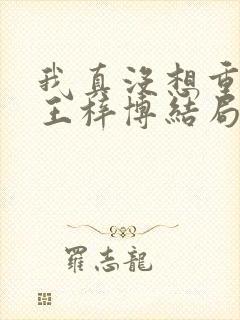 我真沒想重
王梓博結局
羅志龍